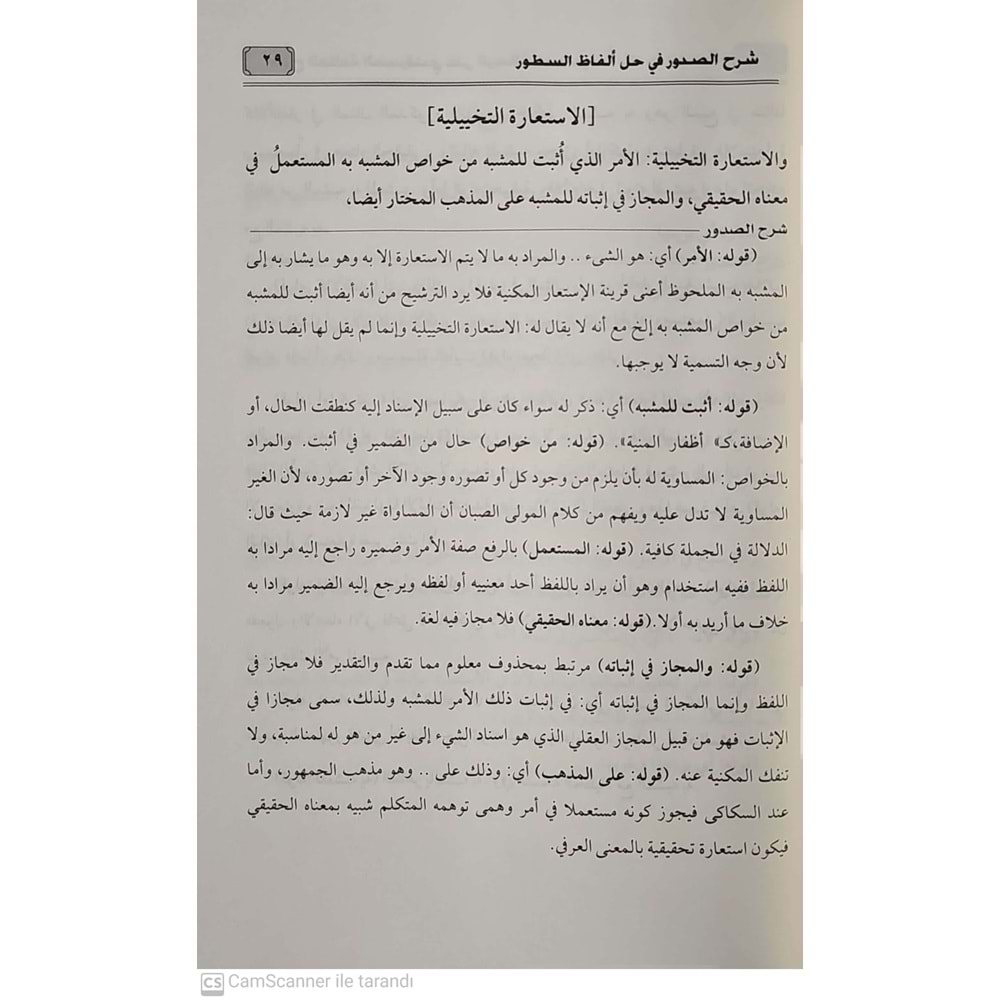 شرح الصدور في حل ألفاظ السطور
٢٩
[الاستعارة التخييلية]
والاستعارة التخييلية: الأمر الذي أُثبت للمشبه من خواص المشبه به المستعملُ في
معناه الحقيقي، والمجاز في إثباته للمشبه على المذهب المختار أيضا،
شرح الصدور
(قوله: الأمر) أي: هو الشيء .. والمراد به ما لا يتم الاستعارة إلا به وهو ما يشار به إلى
المشبه به الملحوظ أعنى قرينة الإستعار المكنية فلا يرد الترشيح من أنه أيضا أثبت للمشبه
من خواص المشبه به إلخ مع أنه لا يقال له: الاستعارة التخييلية وإنما لم يقل لها أيضا ذلك
لأن وجه التسمية لا يوجبها.
(قوله: أثبت للمشبه) أي: ذكر له سواء كان على سبيل الإسناد إليه كنطقت الحال، أو
الإضافة،كـ» أظفار المنية». (قوله: من خواص) حال من الضمير في أثبت. والمراد
بالخواص: المساوية له بأن يلزم من وجود كل أو تصوره وجود الآخر أو تصوره، لأن الغير
المساوية لا تدل عليه ويفهم من كلام المولى الصبان أن المساواة غير لازمة حيث قال:
الدلالة في الجملة كافية. (قوله: المستعمل) بالرفع صفة الأمر وضميره راجع إليه مرادا به
اللفظ ففيه استخدام وهو أن يراد باللفظ أحد معنييه أو لفظه ويرجع إليه الضمير مرادا به
خلاف ما أريد به أولا.(قوله: معناه الحقيقي) فلا مجاز فيه لغة.
(قوله: والمجاز في إثباته) مرتبط بمحذوف معلوم مما تقدم والتقدير فلا مجاز في
اللفظ وإنما المجاز في إثباته أي: في إثبات ذلك الأمر للمشبه ولذلك، سمى مجازا في
الإثبات فهو من قبيل المجاز العقلي الذي هو اسناد الشيء إلى غير من هو له لمناسبة، ولا
تنفك المكنية عنه. (قوله: على المذهب) أي: وذلك على .. وهو مذهب الجمهور، وأما
عند السكاكى فيجوز كونه مستعملا في أمر وهمى توهمه المتكلم شبيه بمعناه الحقيقي
فيكون استعارة تحقيقية بالمعنى العرفي.
CS CamScanner ile tarandı